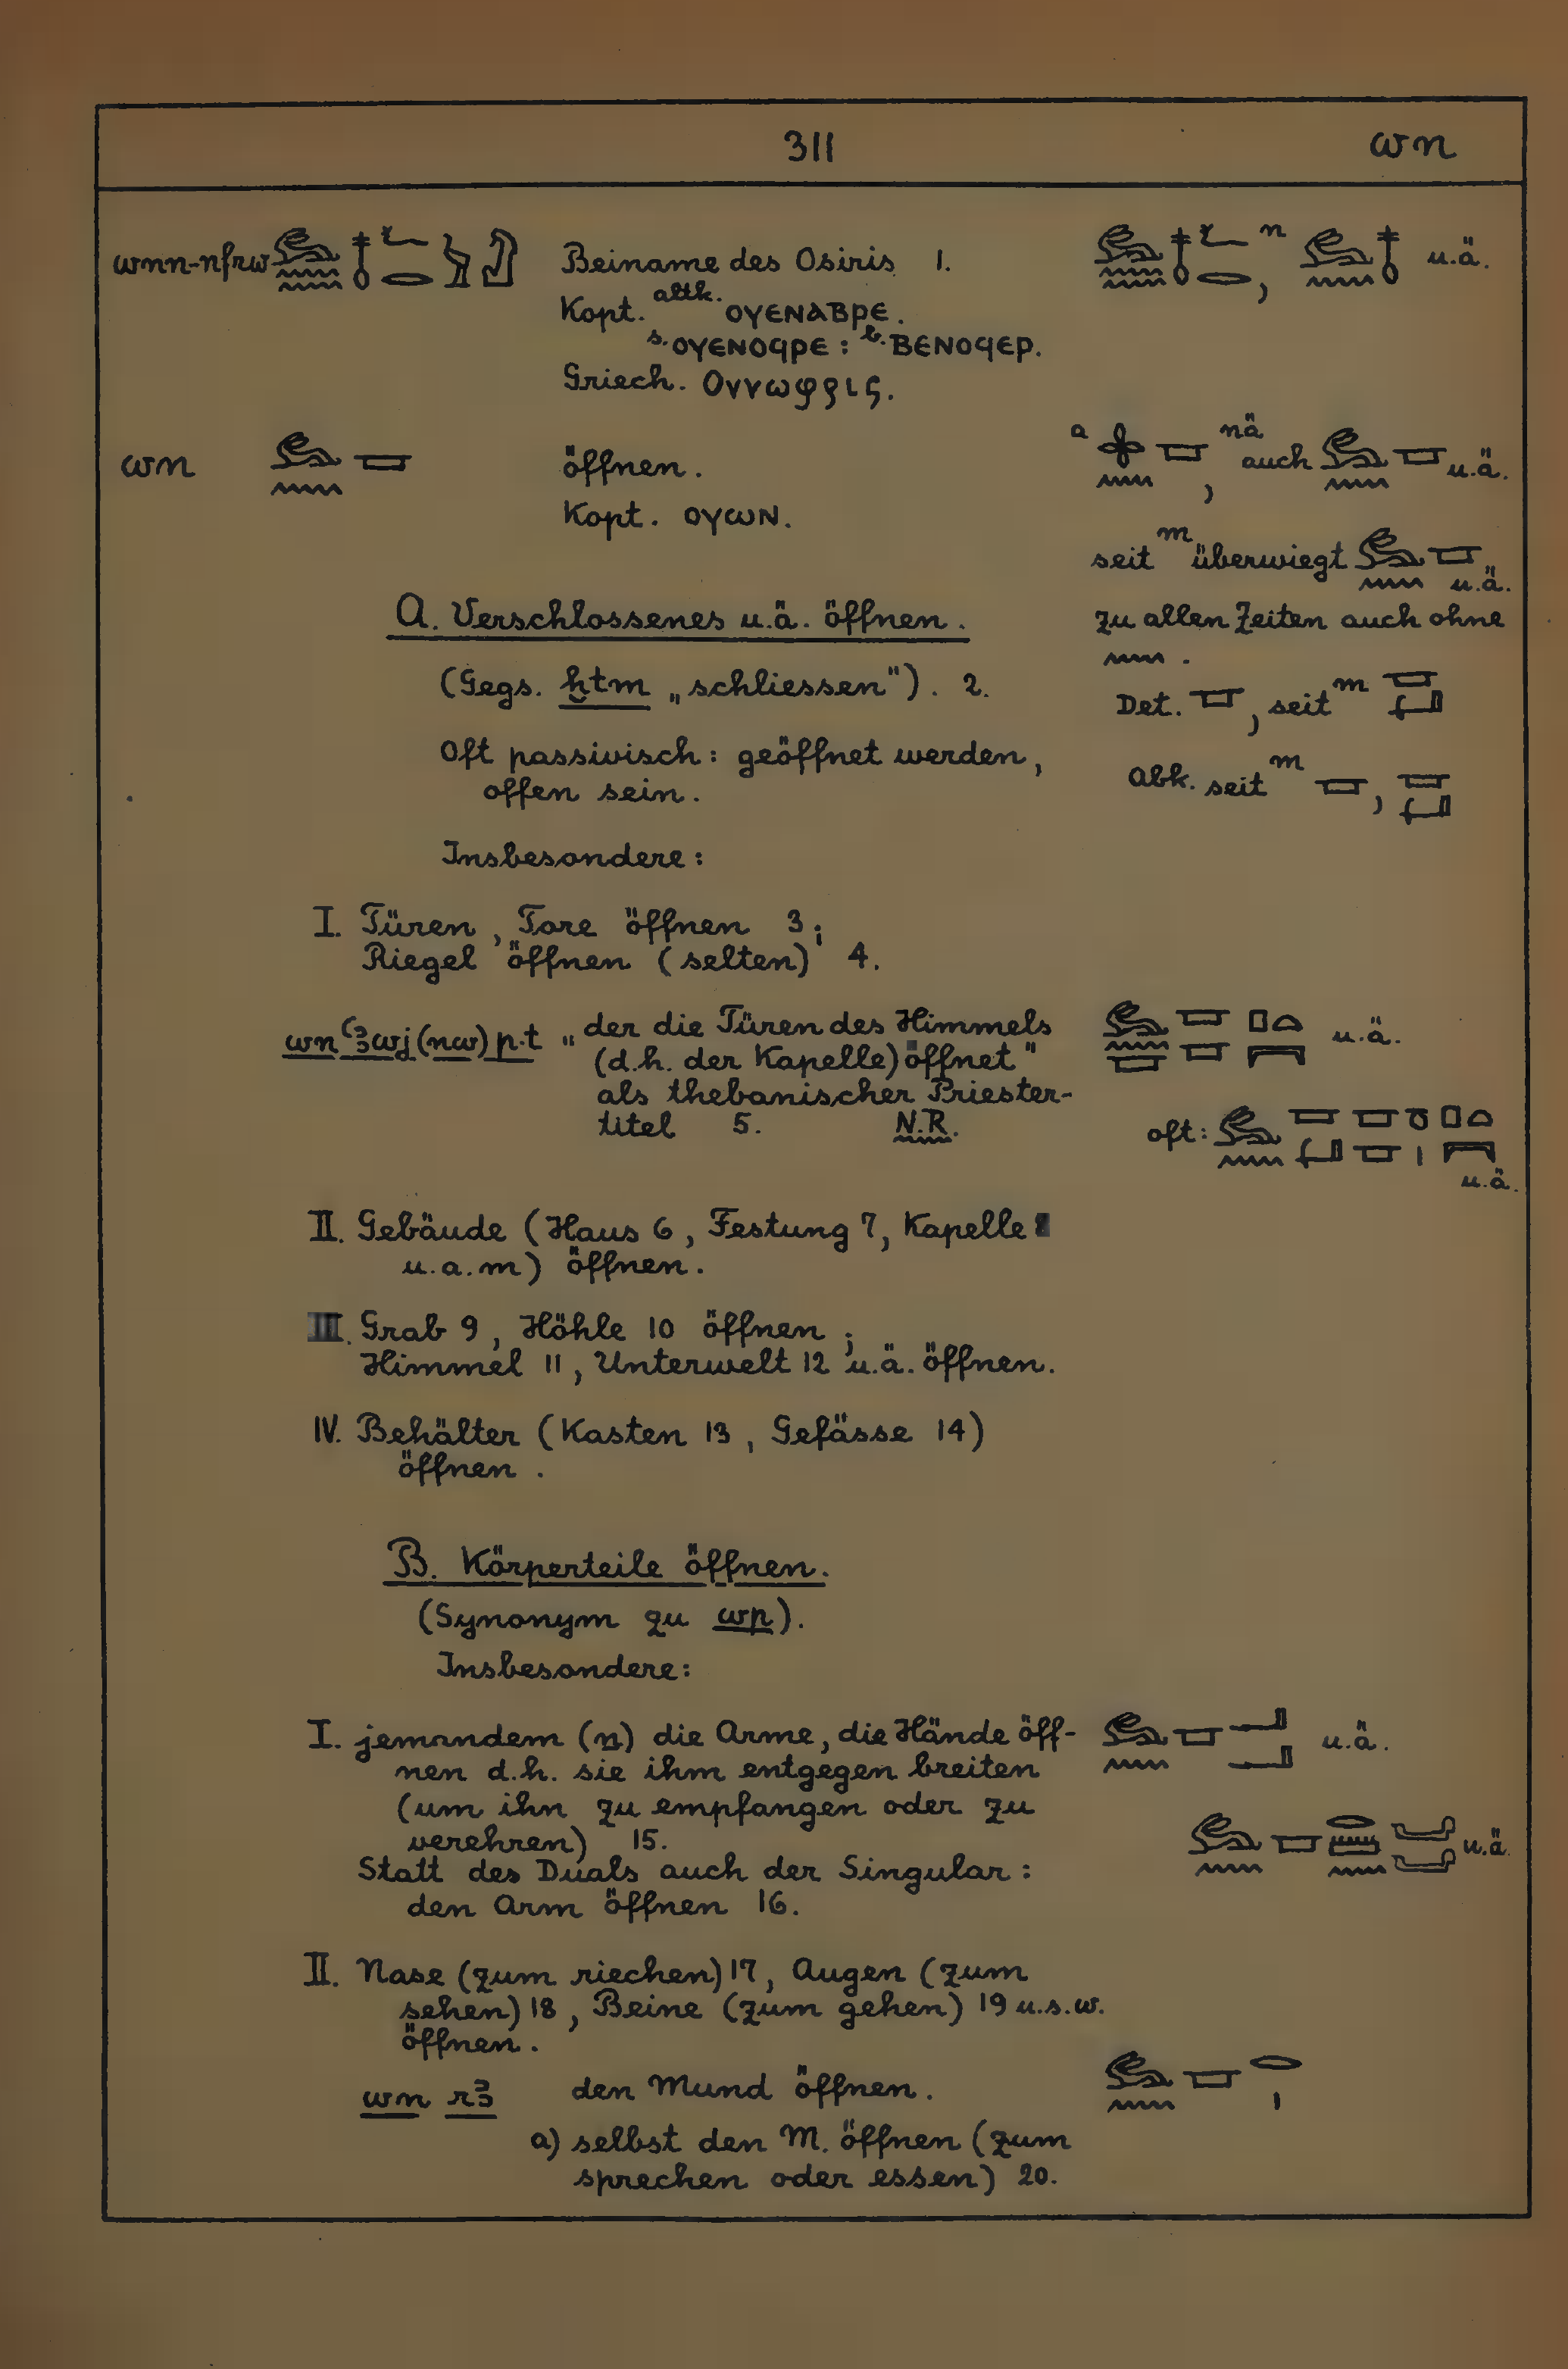 311 wn
wnn-nfrw Beiname des Osiris 1. n, u.ä.
Kopt. altk. ΟΥΕΝΑΒΡΕ.
s. ⲟⲩⲉⲛⲟϥⲣⲉ : b. ⲃⲉⲛⲟϥⲉⲣ.
Griech. Οννωφρις.
wn öffnen. a , nä auch u.ä.
Kopt. ⲟⲩⲱⲛ.
seit m überwiegt u.ä.
A. Verschlossenes u.ä. öffnen. zu allen Zeiten auch ohne
(Gegs. ḫtm „schliessen"). 2. Det. , seit m
Oft passivisch: geöffnet werden,
offen sein. Abk. seit m ,
Insbesondere:
I. Türen, Tore öffnen 3;
Riegel öffnen (selten) 4.
wn ꜥꜣwj (nw) p.t „der die Türen des Himmels u.ä.
(d.h. der Kapelle) öffnet"
als thebanischer Priester-
titel 5. N.R. oft: u.ä.
II. Gebäude (Haus 6, Festung 7, Kapelle
u.a.m) öffnen.
III. Grab 9, Höhle 10 öffnen;
Himmel 11, Unterwelt 12 u.ä. öffnen.
IV. Behälter (Kasten 13, Gefässe 14)
öffnen.
B. Körperteile öffnen.
(Synonym zu wp).
Insbesondere:
I. jemandem (n) die Arme, die Hände öff- u.ä.
nen d.h. sie ihm entgegen breiten
(um ihn zu empfangen oder zu
verehren) 15. u.ä.
Statt des Duals auch der Singular:
den Arm öffnen 16.
II. Nase (zum riechen) 17, Augen (zum
sehen) 18, Beine (zum gehen) 19 u.s.w.
öffnen.
wn rꜣ den Mund öffnen.
a) selbst den M. öffnen (zum
sprechen oder essen) 20.